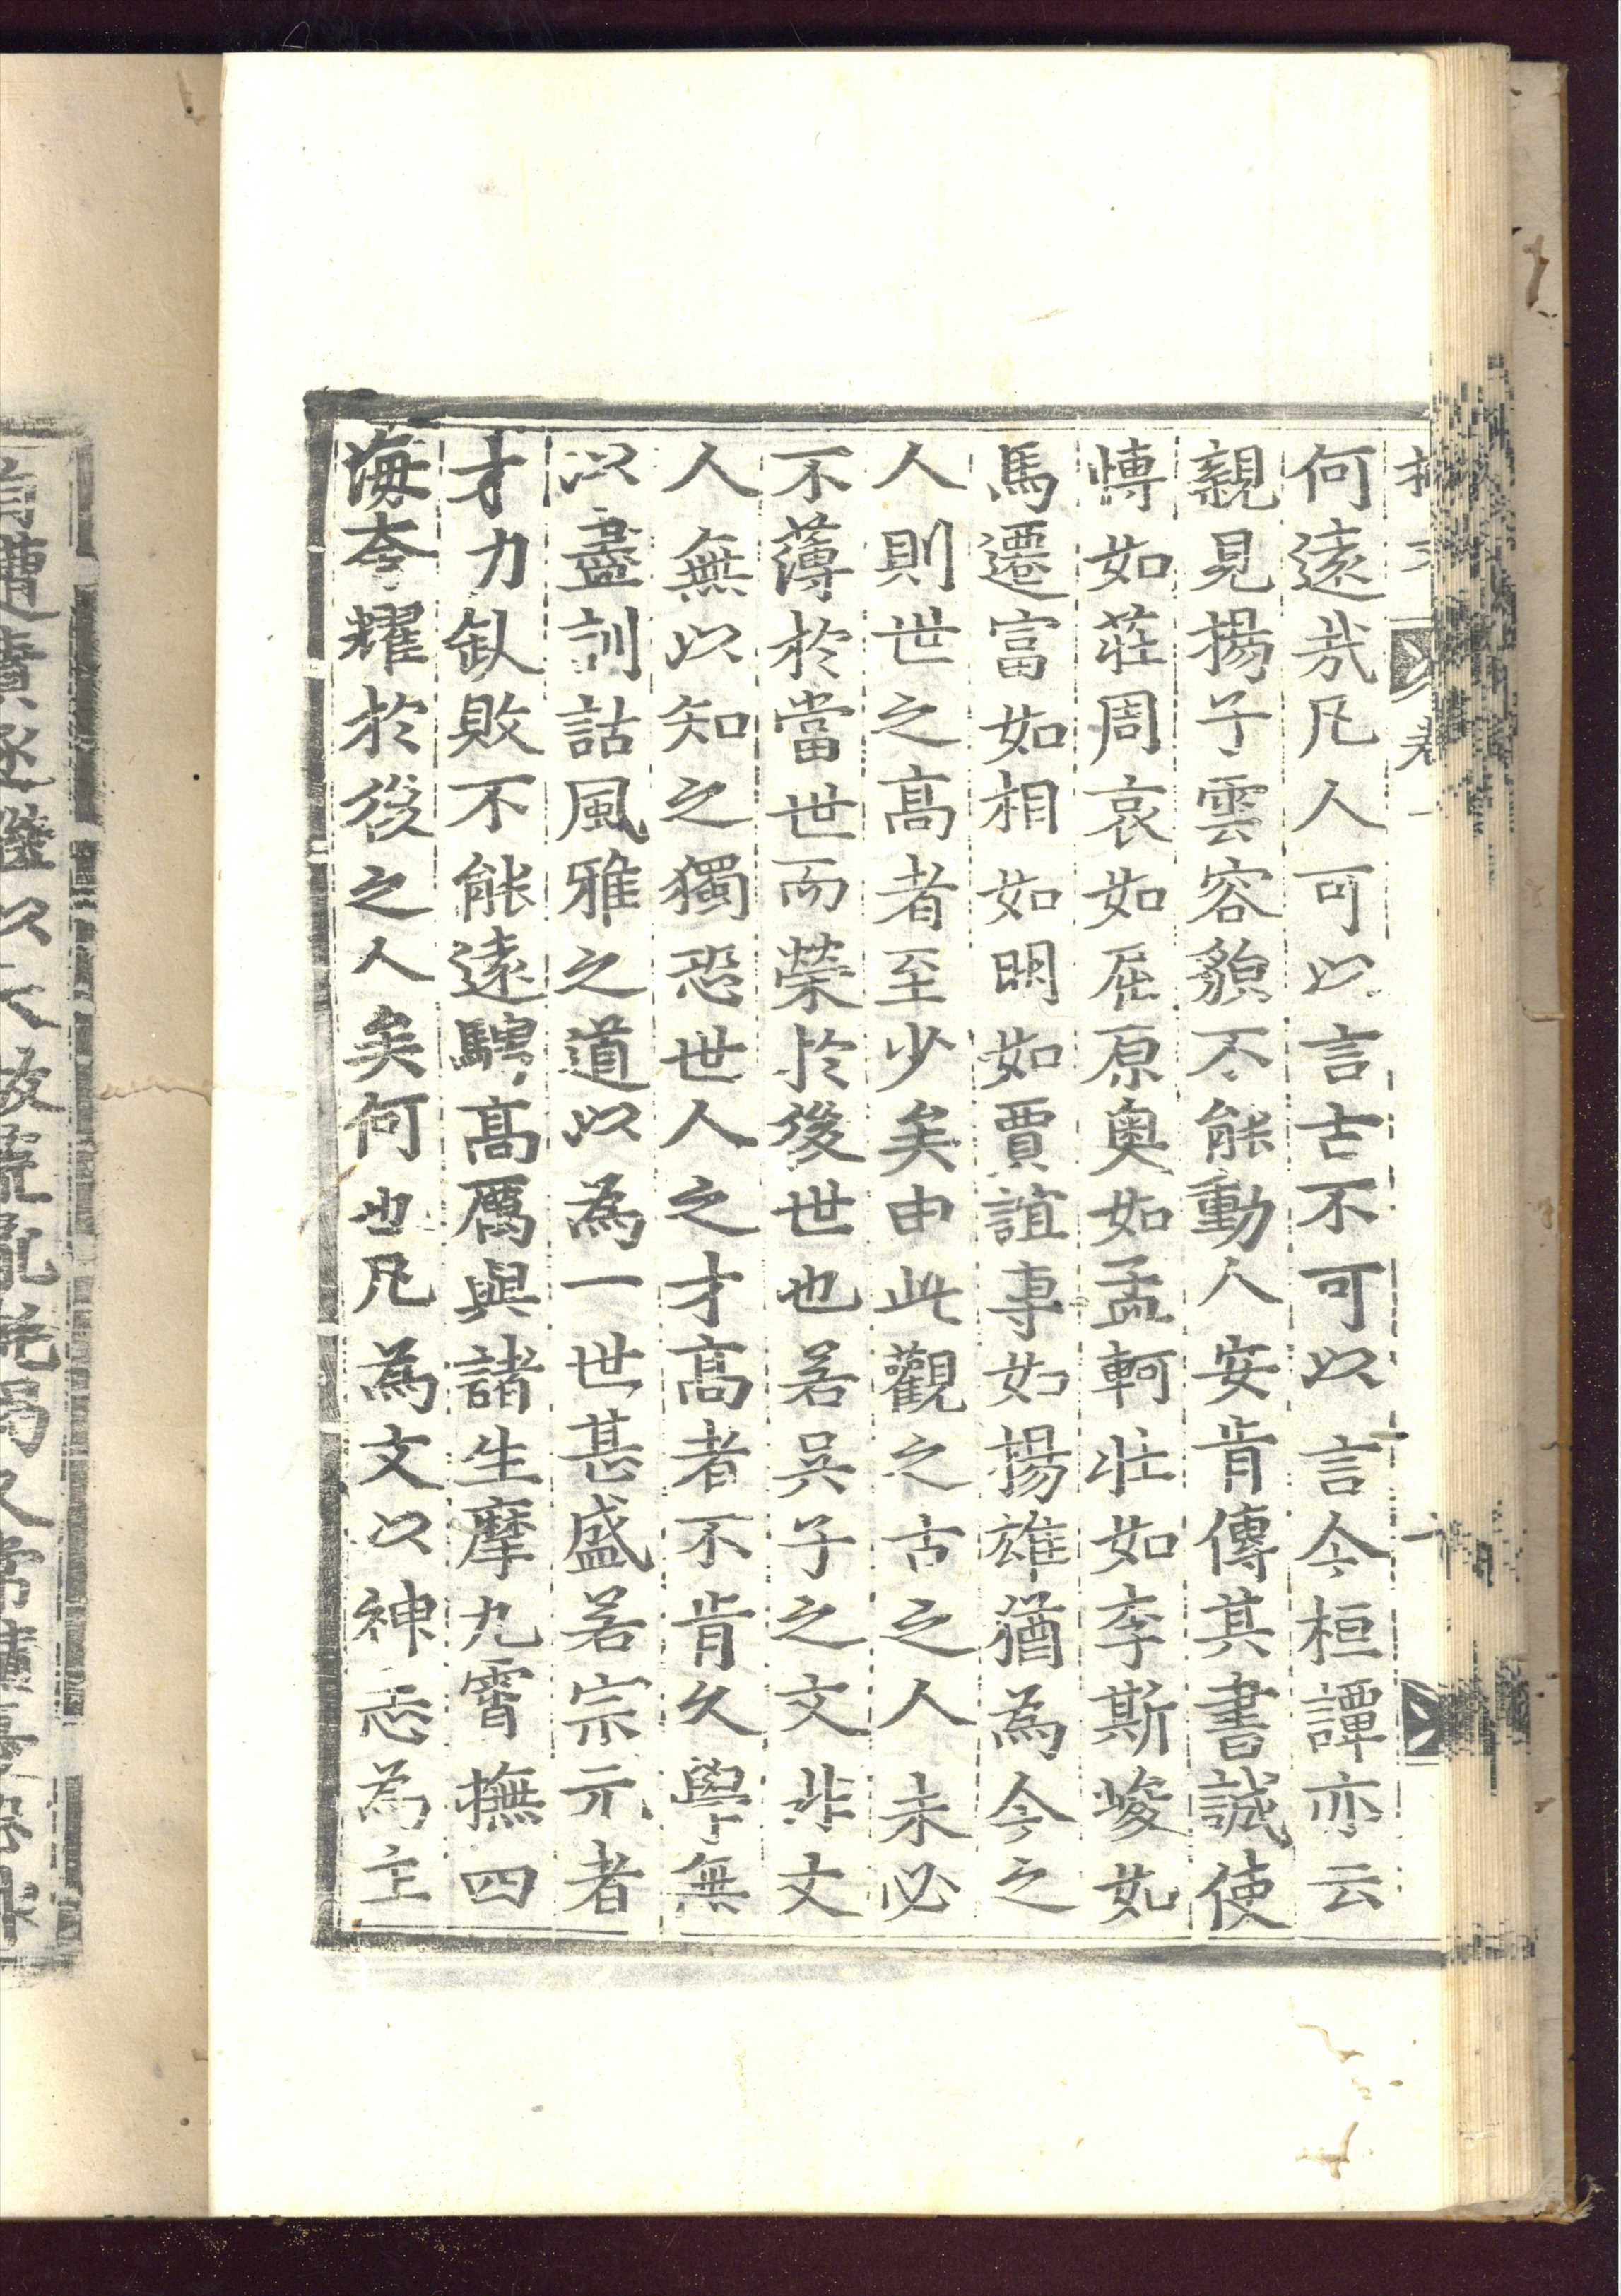 何遠哉凡人可以言古不可以言今桓譚亦云
親見揚子雲容貌不能動人安肯傳其書誠使
慱如莊周哀如屈原奥如孟軻壯如李斯峻如
馬遷富如相如明如賈誼專如揚雄猶為今之
人則世之高者至少矣由此觀之古之人未必
不薄於當世而榮於後世也若吳子之文非丈
人無以知之獨恐世人之才高者不肯久學無
以盡訓詁風雅之道以為一世甚盛若宗元者
才力缺敗不能遠騁高厲與諸生摩九霄撫四
海夸耀於後之人矣何也凡為文以神志為主